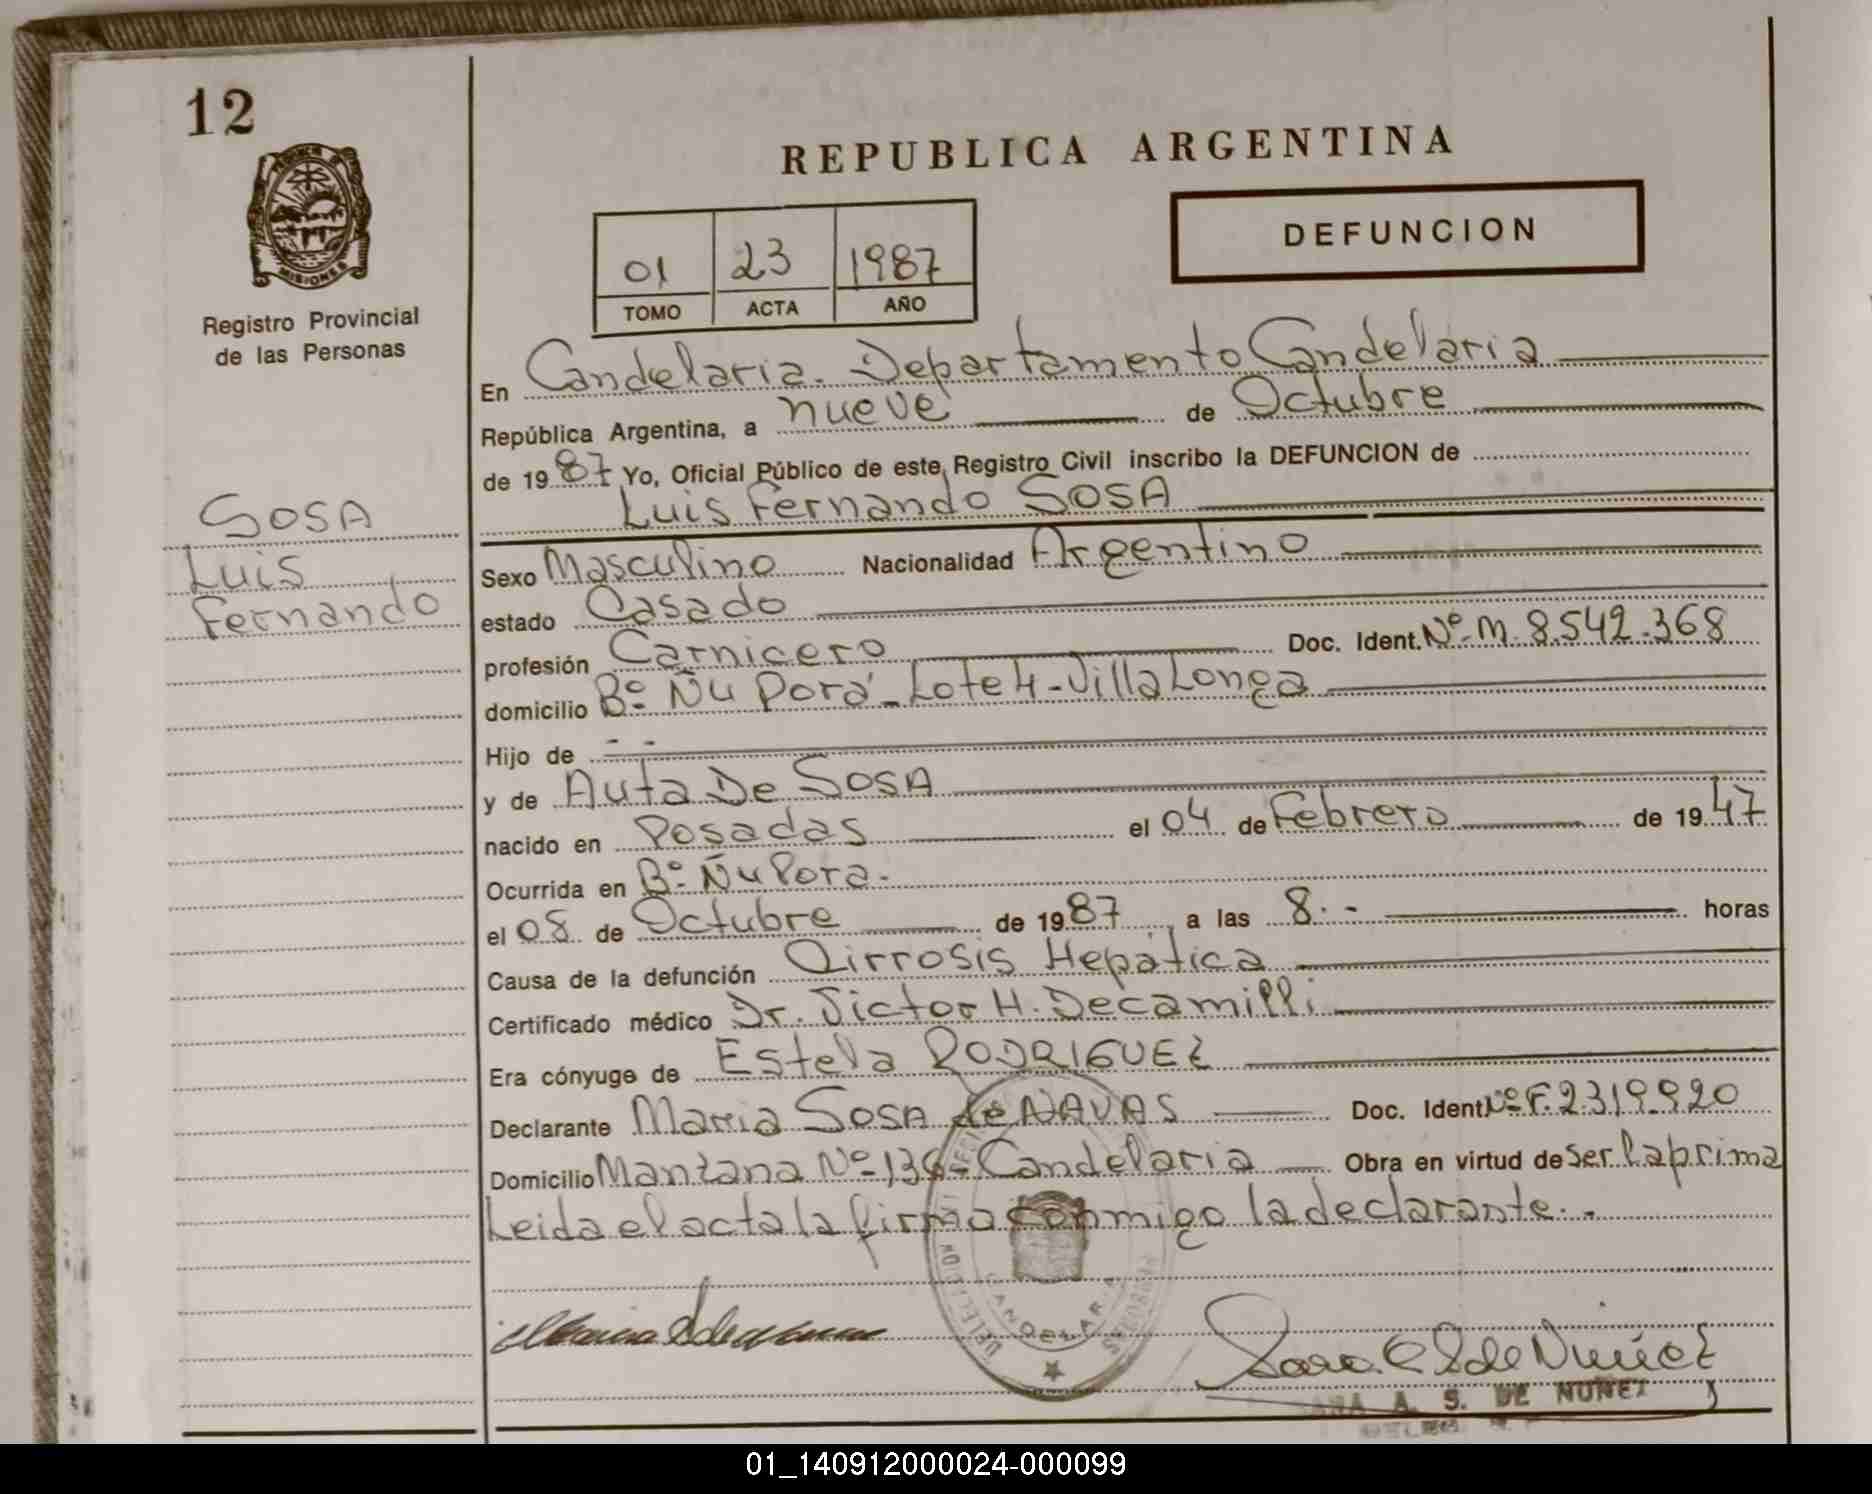 12
REPUBLICA ARGENTINA
MISIONES
Registro Provincial
de las Personas
01 23 1987
TOMO ACTA AÑO
DEFUNCION
En Candelaria. Departamento Candelaria
República Argentina, a nueve de Octubre
de 1987 Yo, Oficial Público de este Registro Civil inscribo la DEFUNCION de
Luis Fernando SOSA
SOSA
Luis
Fernando
Sexo Masculino Nacionalidad Argentino
estado Casado
profesión Carnicero Doc. Ident. Nº M. 8.542.368
domicilio Bº Ñu Porá - Lote 4 - Villa Longa
Hijo de - -
y de Auta De SOSA
nacido en Posadas el 04 de Febrero de 1947
Ocurrida en Bº Ñu Pora.
el 08 de Octubre de 1987 a las 8.- horas
Causa de la defunción Cirrosis Hepática
Certificado médico Dr. Victor H. Decamilli
Era cónyuge de Estela RODRIGUEZ
Declarante Maria SOSA de NAVAS Doc. Ident Nº F. 2.319.920
Domicilio Manzana Nº 136 - Candelaria Obra en virtud de ser la prima
Leida el acta la firma conmigo la declarante.-
CANDELARIA
A. S. DE NUÑEZ
01_140912000024-000099